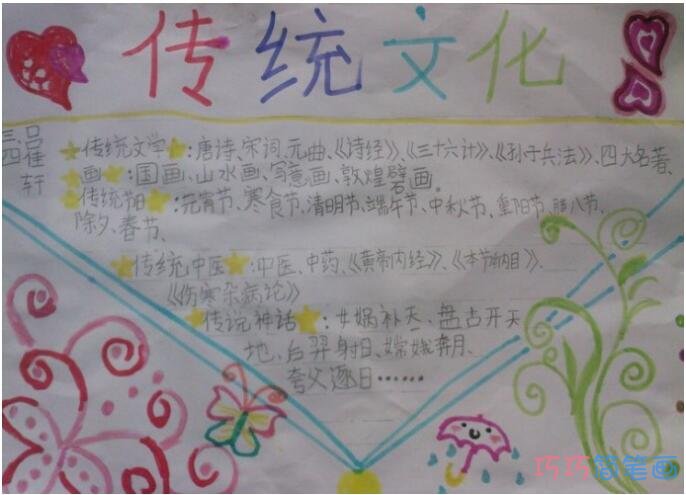 传统文化
三吕
四崔
轩
传统文学：唐诗、宋词、元曲、《诗经》、《三十六计》、《孙子兵法》、四大名著、
画：国画、山水画、写意画、敦煌壁画。
传统节日：元宵节、寒食节、清明节、端午节、中秋节、重阳节、腊八节、
除夕、春节、
传统中医：中医、中药、《黄帝内经》、《本节纲目》、
《伤寒杂病论》
传说神话：女娲补天、盘古开天
地、后羿射日、嫦娥奔月、
夸父逐日……
巧巧简笔画